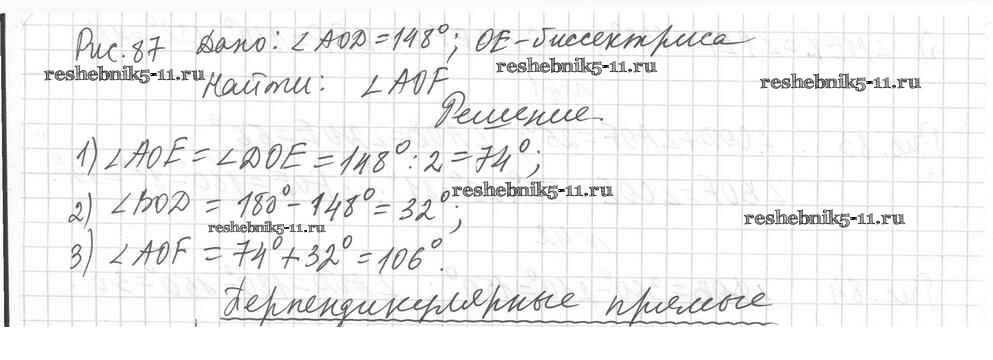 Рис. 87 Дано: ∠AOD = 148°; OE - биссектриса
reshebnik5-11.ru reshebnik5-11.ru reshebnik5-11.ru
Найти: ∠AOF
Решение.
1) ∠AOE = ∠DOE = 148° : 2 = 74°;
reshebnik5-11.ru
2) ∠BOD = 180° - 148° = 32°;
reshebnik5-11.ru reshebnik5-11.ru
3) ∠AOF = 74° + 32° = 106°.
Перпендикулярные прямые